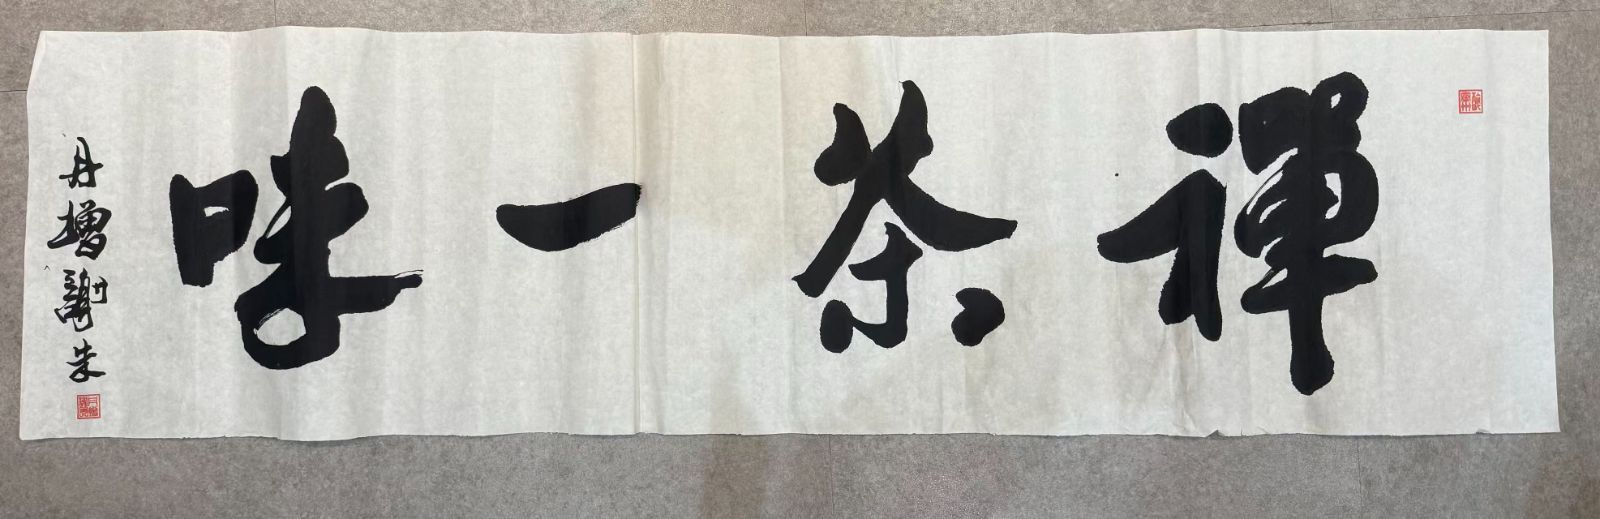 禪茶一味
丹增謝朱